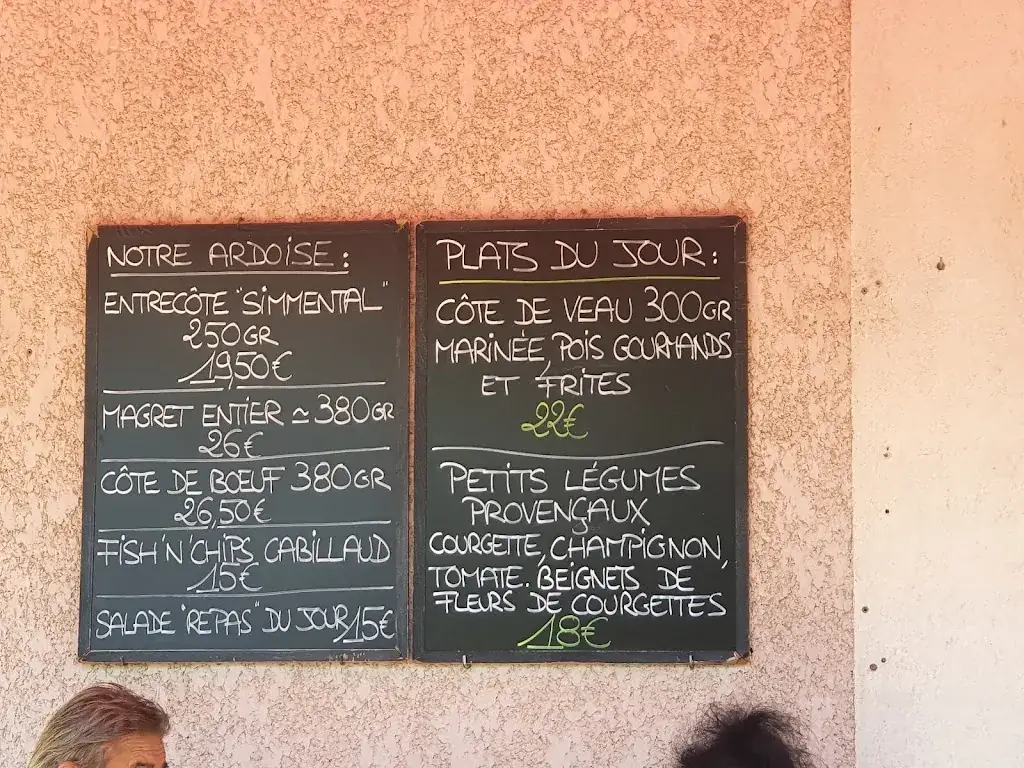 NOTRE ARDOISE :
ENTRECÔTE "SIMMENTAL"
250GR
19,50€
MAGRET ENTIER ≃ 380GR
26€
CÔTE DE BŒUF 380GR
26,50€
FISH 'N' CHIPS CABILLAUD
15€
SALADE "REPAS" DU JOUR 15€
PLATS DU JOUR :
CÔTE DE VEAU 300GR
MARINÉE, POIS GOURMANDS
ET FRITES
22€
PETITS LÉGUMES
PROVENÇAUX
COURGETTE, CHAMPIGNON,
TOMATE. BEIGNETS DE
FLEURS DE COURGETTES
18€